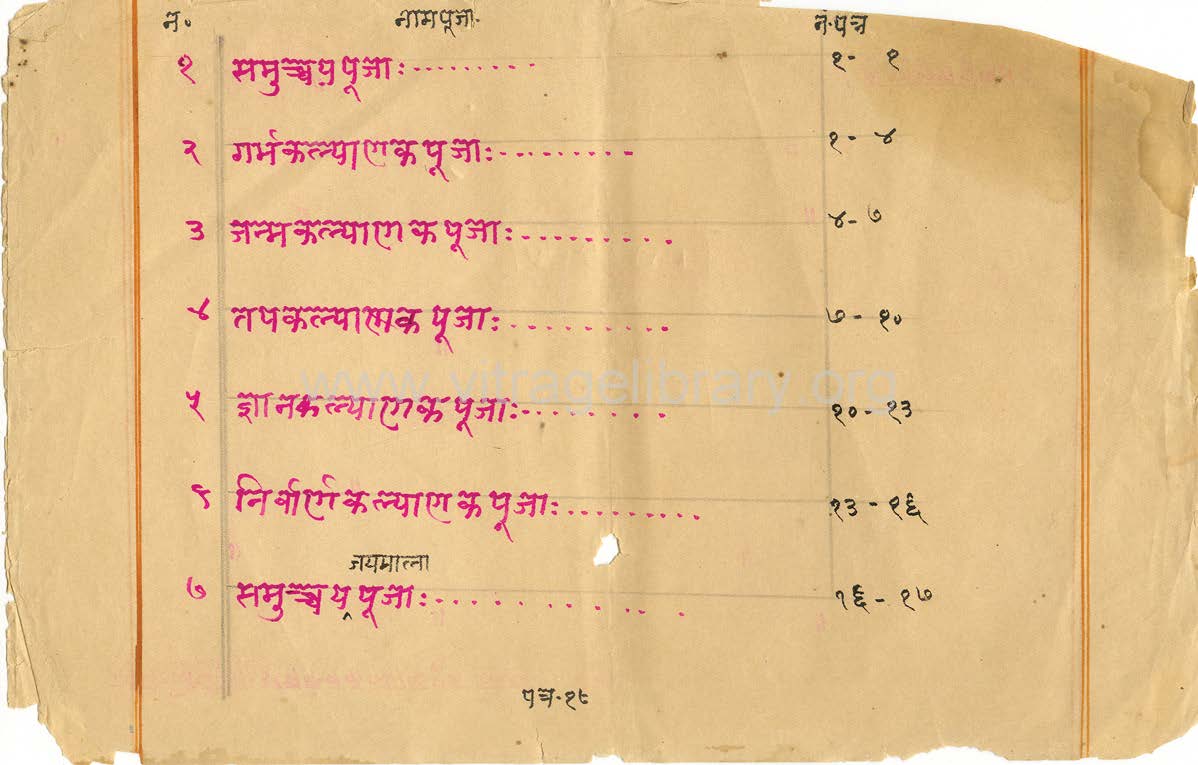 न० नामपूजा न.पत्र
१ समुच्चयपूजाः......... १- १
२ गर्भकल्याणकपूजाः......... १- ४
३ जन्मकल्याणकपूजाः......... ४- ७
४ तपकल्याणकपूजाः......... ७- १०
५ ज्ञानकल्याणकपूजाः......... १०-१३
६ निर्वाणकल्याणकपूजाः......... १३-१६
जयमाला
७ समुच्चय‸पूजाः............ १६- १७
पत्र-१८
www.vitragelibrary.org